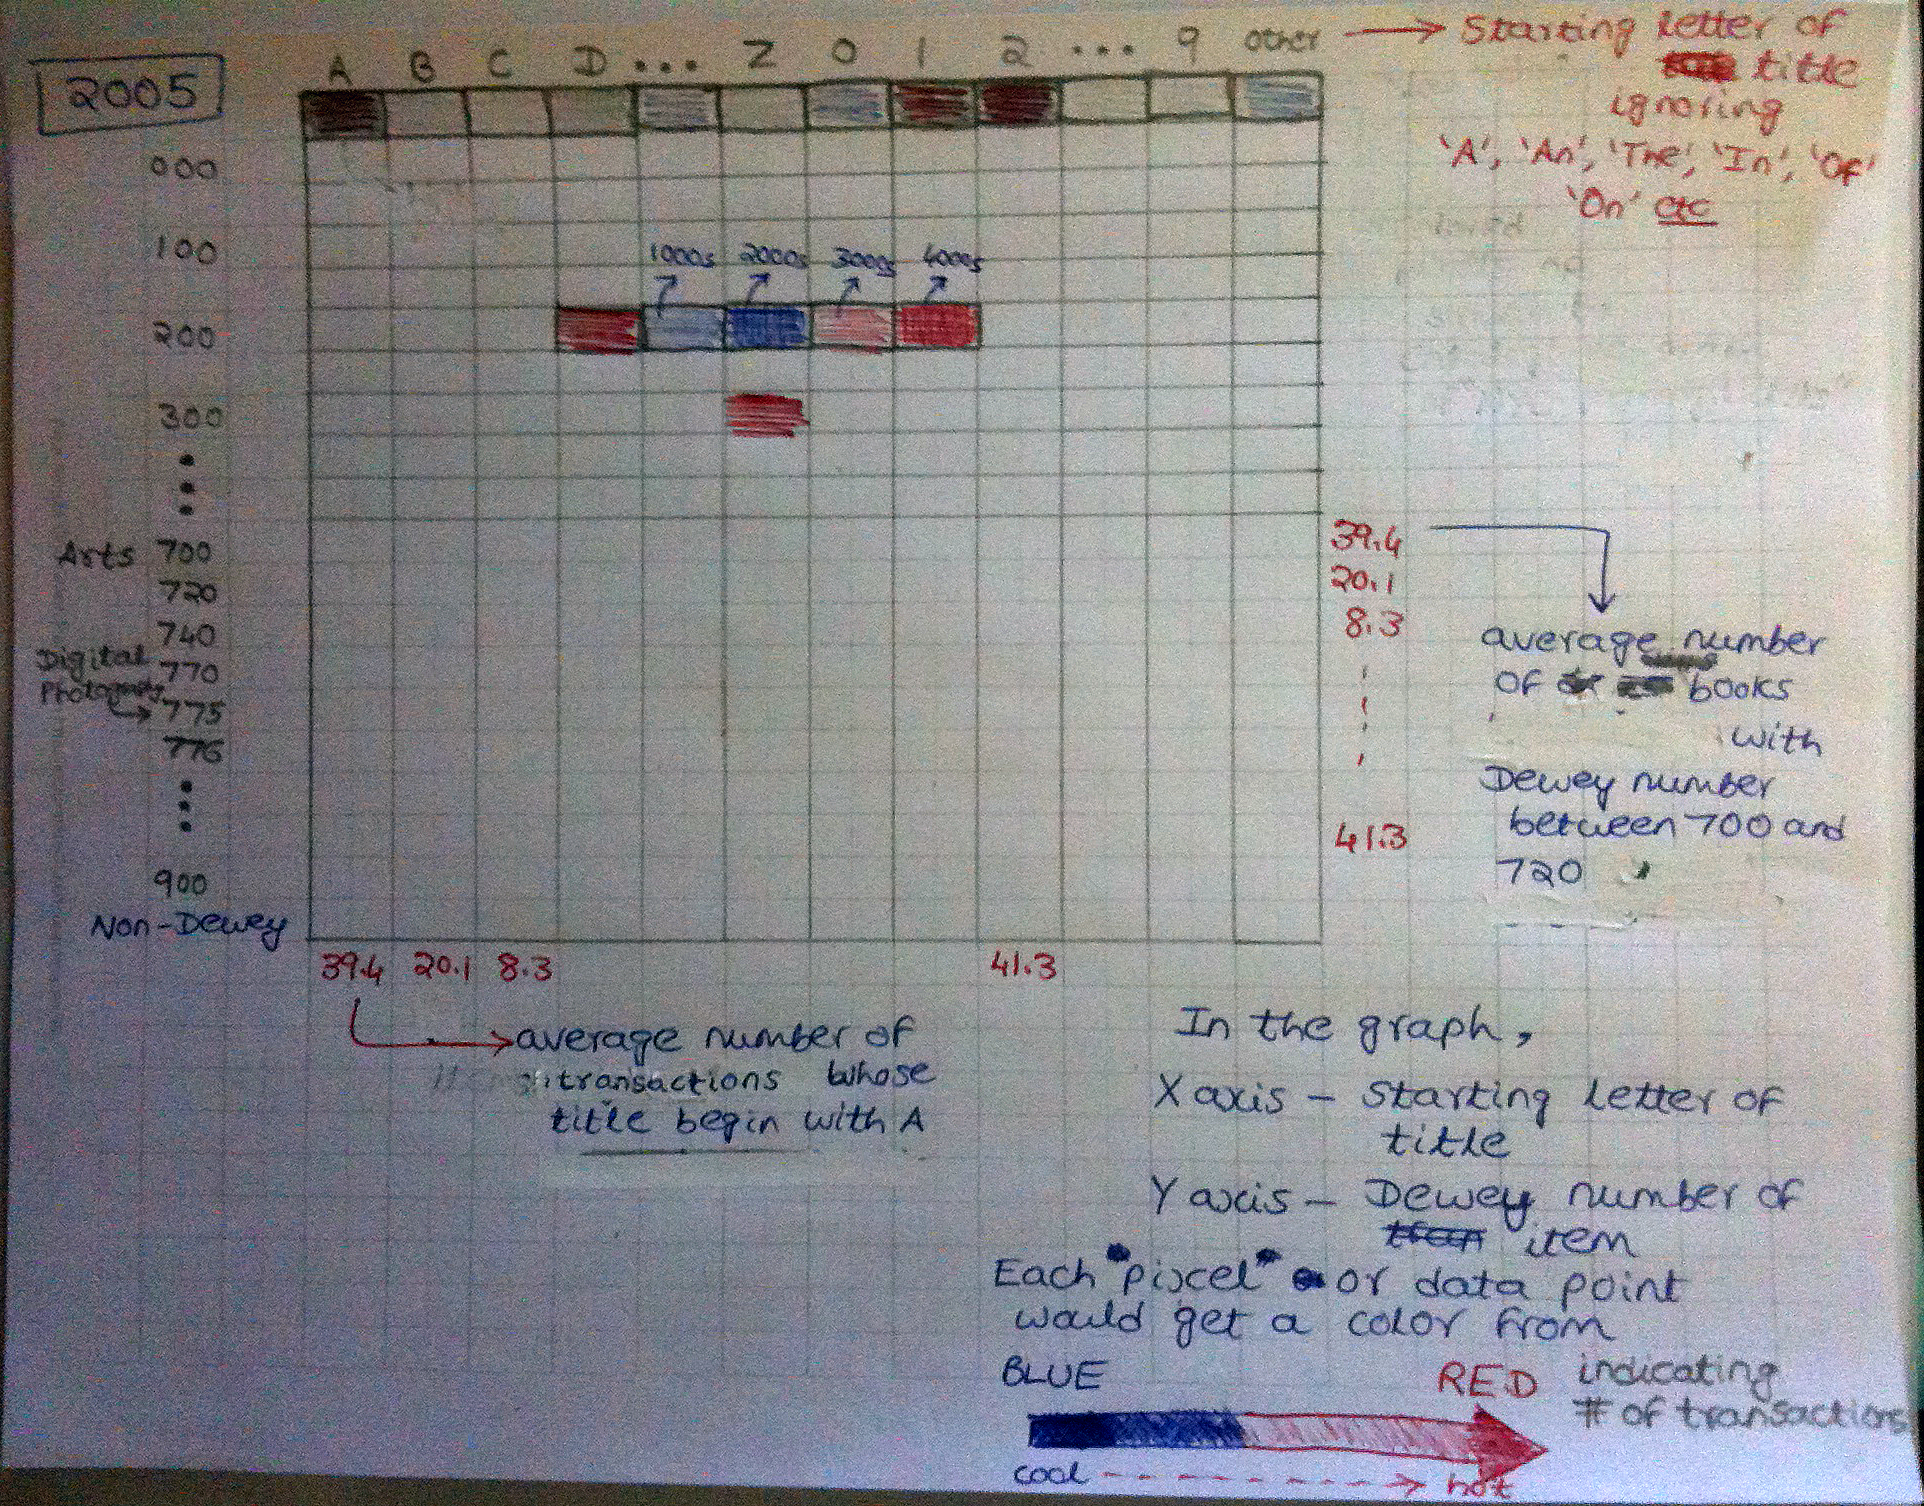 2005
A B C D ... Z 0 1 2 ... 9 other
Starting letter of
title
ignoring
'A', 'An', 'The', 'In', 'Of'
'On' etc
000
100
1000s 2000s 3000s 4000s
200
300
Arts 700
720
740
Digital 770
Photography
775
776
900
Non-Dewey
39.4
20.1
8.3
41.3
average number
of books
with
Dewey number
between 700 and
720
39.4 20.1 8.3 41.3
average number of
transactions whose
title begin with A
In the graph,
X axis - Starting letter of
title
Y axis - Dewey number of
item
Each "pixel" or data point
would get a color from
BLUE RED indicating
# of transactions
cool hot